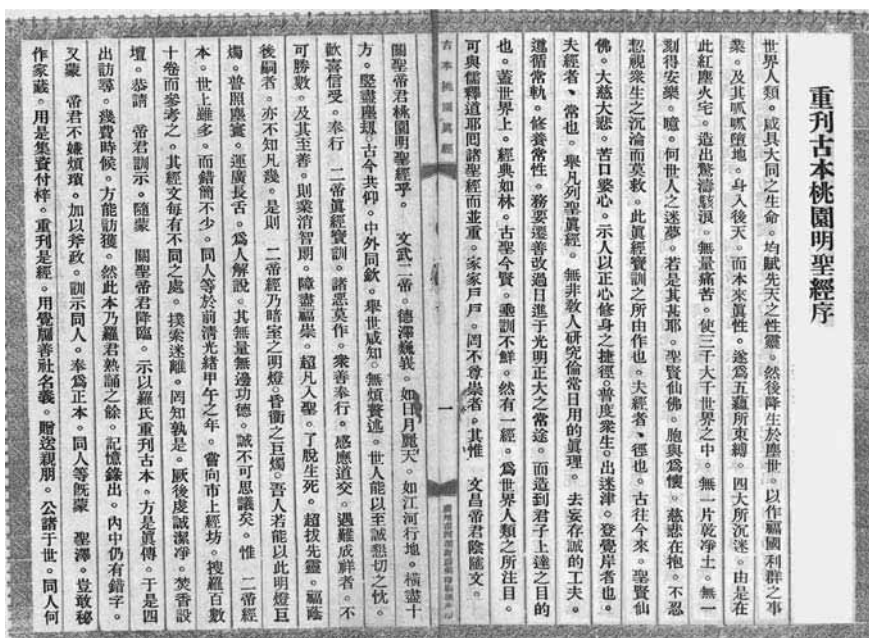 重刊古本桃園明聖經序
世界人類。咸具大同之生命。均賦先天之性靈。然後降生於塵世。以作福國利群之事
業。及其呱呱墮地。身入後天。而本來眞性。遂爲五蘊所束縛。四大所沉迷。由是在
此紅塵火宅。造出驚濤駭浪。無量痛苦。使三千大千世界之中。無一片乾净土。無一
刻得安樂。噫。何世人之迷夢。若是其甚耶。聖賢仙佛。胞與爲懷。慈悲在抱。不忍
恝視衆生之沉淪而莫救。此眞經寶訓之所由作也。夫經者、徑也。古往今來。聖賢仙
佛。大慈大悲。苦口婆心。示人以正心修身之捷徑。普度衆生。出迷津。登覺岸者也。
夫經者、常也。舉凡列聖眞經。無非敎人研究倫常日用的眞理。去妄存誠的工夫。
遵循常軌。修養常性。務要遷善改過日進于光明正大之常途。而造到君子上達之目的
也。蓋世界上。經典如林。古聖今賢。垂訓不鮮。然有一經。爲世界人類之所注目。
可與儒釋道耶囘諸聖經而並重。家家戶戶。罔不尊崇者。其惟 文昌帝君陰隲文。
古本桃園眞經
一
關聖帝君桃園明聖經乎。 文武二帝。德澤巍峩。如日月麗天。如江河行地。橫盡十
方。竪盡塵刧。古今共仰。中外同欽。舉世咸知。無煩贅述。世人能以至誠懇切之忱。
歡喜信受。奉行 二帝眞經寶訓。諸惡莫作。衆善奉行。感應道交。遇難成祥者。不
可勝數。及其至善。則業消智朗。障盡福崇。超凡入聖。了脫生死。超拔先靈。福蔭
後嗣者。亦不知凡幾。是則 二帝經乃暗室之明燈。昏衢之巨燭。吾人若能以此明燈巨
燭。普照塵寰。運廣長舌。爲人解說。其無量無邊功德。誠不可思議矣。惟 二帝經
本。世上雖多。而錯簡不少。同人等於前清光緖甲午之年。嘗向市上經坊。搜羅百數
十卷而參考之。其經文每有不同之處。撲索迷離。罔知孰是。厥後虔誠潔凈。焚香設
壇。恭請 帝君訓示。隨蒙 關聖帝君降臨。示以羅氏重刊古本。方是眞傳。于是四
出訪尋。幾費時候。方能訪獲。然此本乃羅君熟誦之餘。記憶錄出。內中仍有錯字。
又蒙 帝君不嫌煩瑣。加以斧政。訓示同人。奉爲正本。同人等旣蒙 聖澤。豈敢秘
作家藏。用是集資付梓。重刊是經。用覺屬善社名義。贈送親朋。公諸于世。同人何